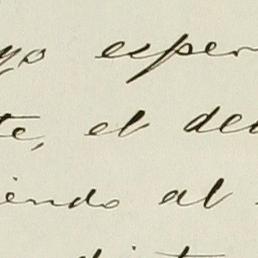 yo esper
te, el deb
iendo al